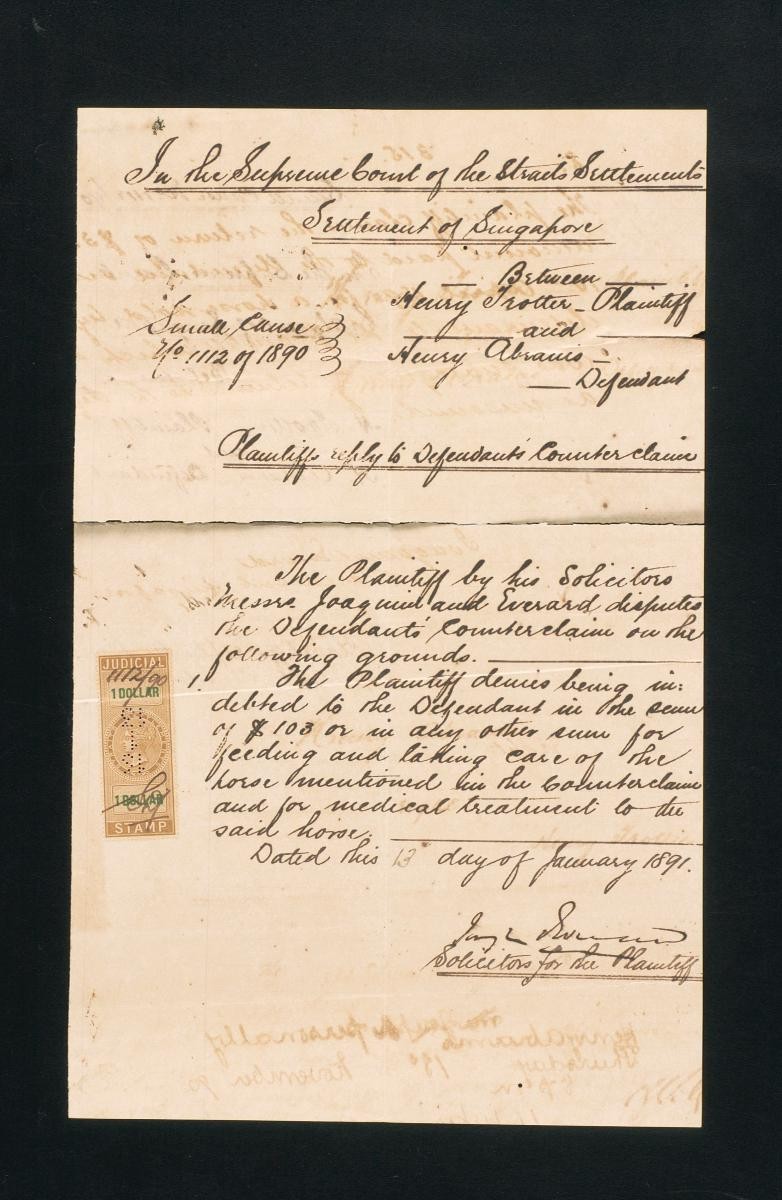 In the Supreme Court of the Straits Settlements
Settlement of Singapore
Between
Henry Trotter - Plaintiff
and
Small Cause
No. 1112 of 1890
Henry Abrams -
- Defendant
Plaintiffs reply to Defendants Counterclaim
The Plaintiff by his Solicitors
Messrs. Joaquim and Everard disputes
the Defendants Counterclaim on the
following grounds.
1. The Plaintiff denies being in:
debted to the Defendant in the sum
of $103 or in any other sum for
feeding and taking care of the
horse mentioned in the Counterclaim
and for medical treatment to the
said horse.
Dated this 13 day of January 1891.
Solicitors for the Plaintiff
JUDICIAL
1112/90
1 DOLLAR
1 DOLLAR
STAMP